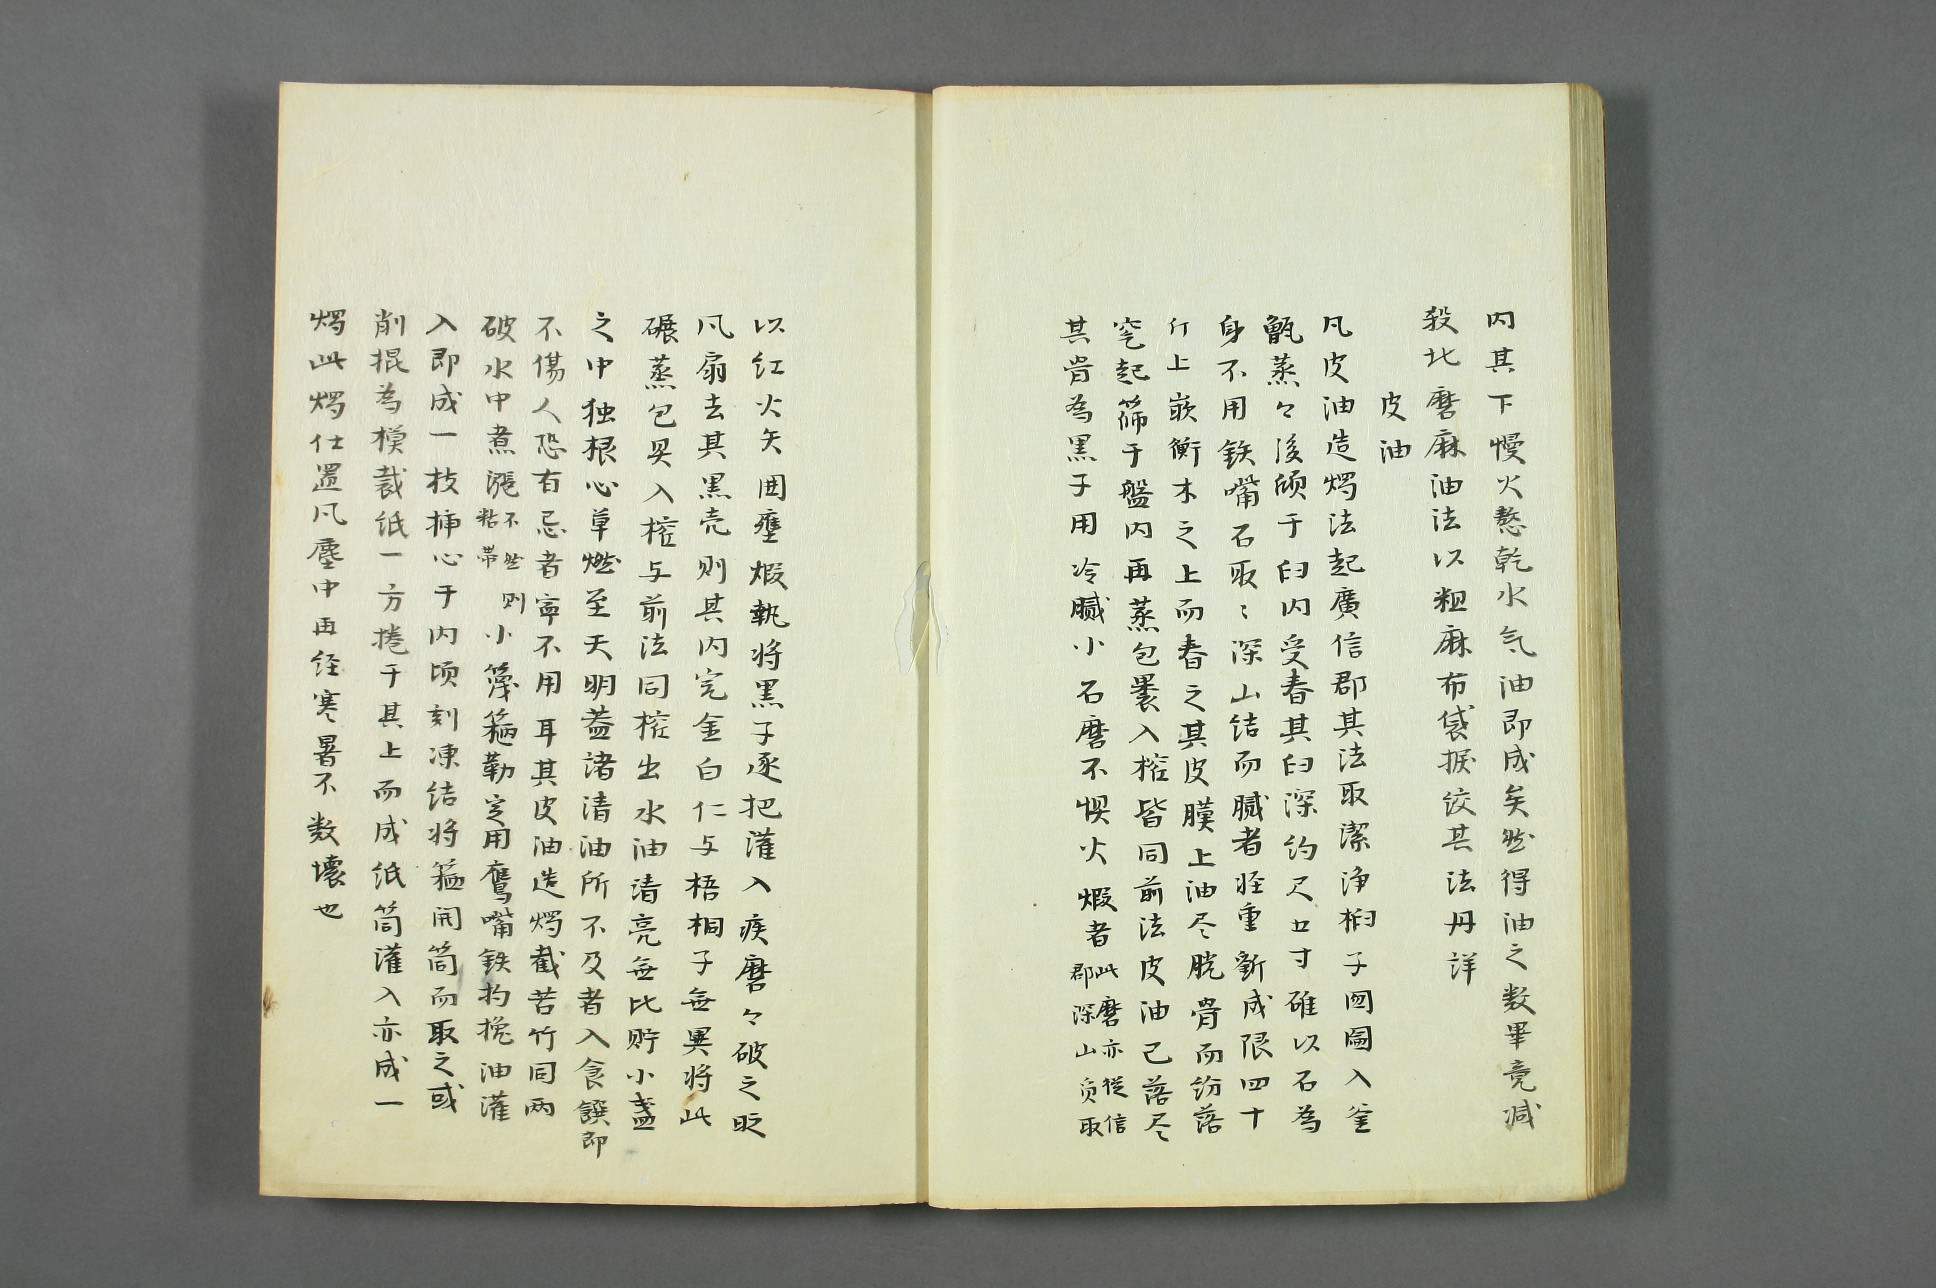 内其下慢火熬乾水气油即成矣然得油之数畢竟减
殺北磨麻油法以粗麻布袋捩绞其法丹詳
皮油
凡皮油造燭法起廣信郡其法取潔净桕子囫圇入釜
甑蒸々後傾于臼内受舂其臼深约尺五寸碓以石為
身不用鉄嘴石取々深山结而膩者𨋢重斲成限四十
斤上嵌衡木之上而舂之其皮膜上油尽脱骨而纷落
空起筛于盤内再蒸包裹入榨皆同前法皮油已落尽
其骨為黒子用冷膩小石磨不惧火煅者此磨亦從信郡深山負取
以红火矢囲壅煅執将黒子逐把灌入疾磨々破之时
凡扇去其黒壳则其内完全白仁与梧桐子無異将此
碾蒸包裹入榨与前法同榨出水油清亮無比贮小盞
之中独根心草燃至天明葢諸清油所不及者入食饌即
不傷人恐有忌者寕不用耳其皮油造燭截苦竹同两
破水中煮漲不然则粘帯小篾箍勒定用鹰嘴鉄杓挽油灌
入即成一枝挿心于内顷刻凍结将箍開筒而取之或
削棍為模裁纸一方捲于其上而成纸筒灌入亦成一
燭此燭任置凡塵中再经寒暑不数壊也